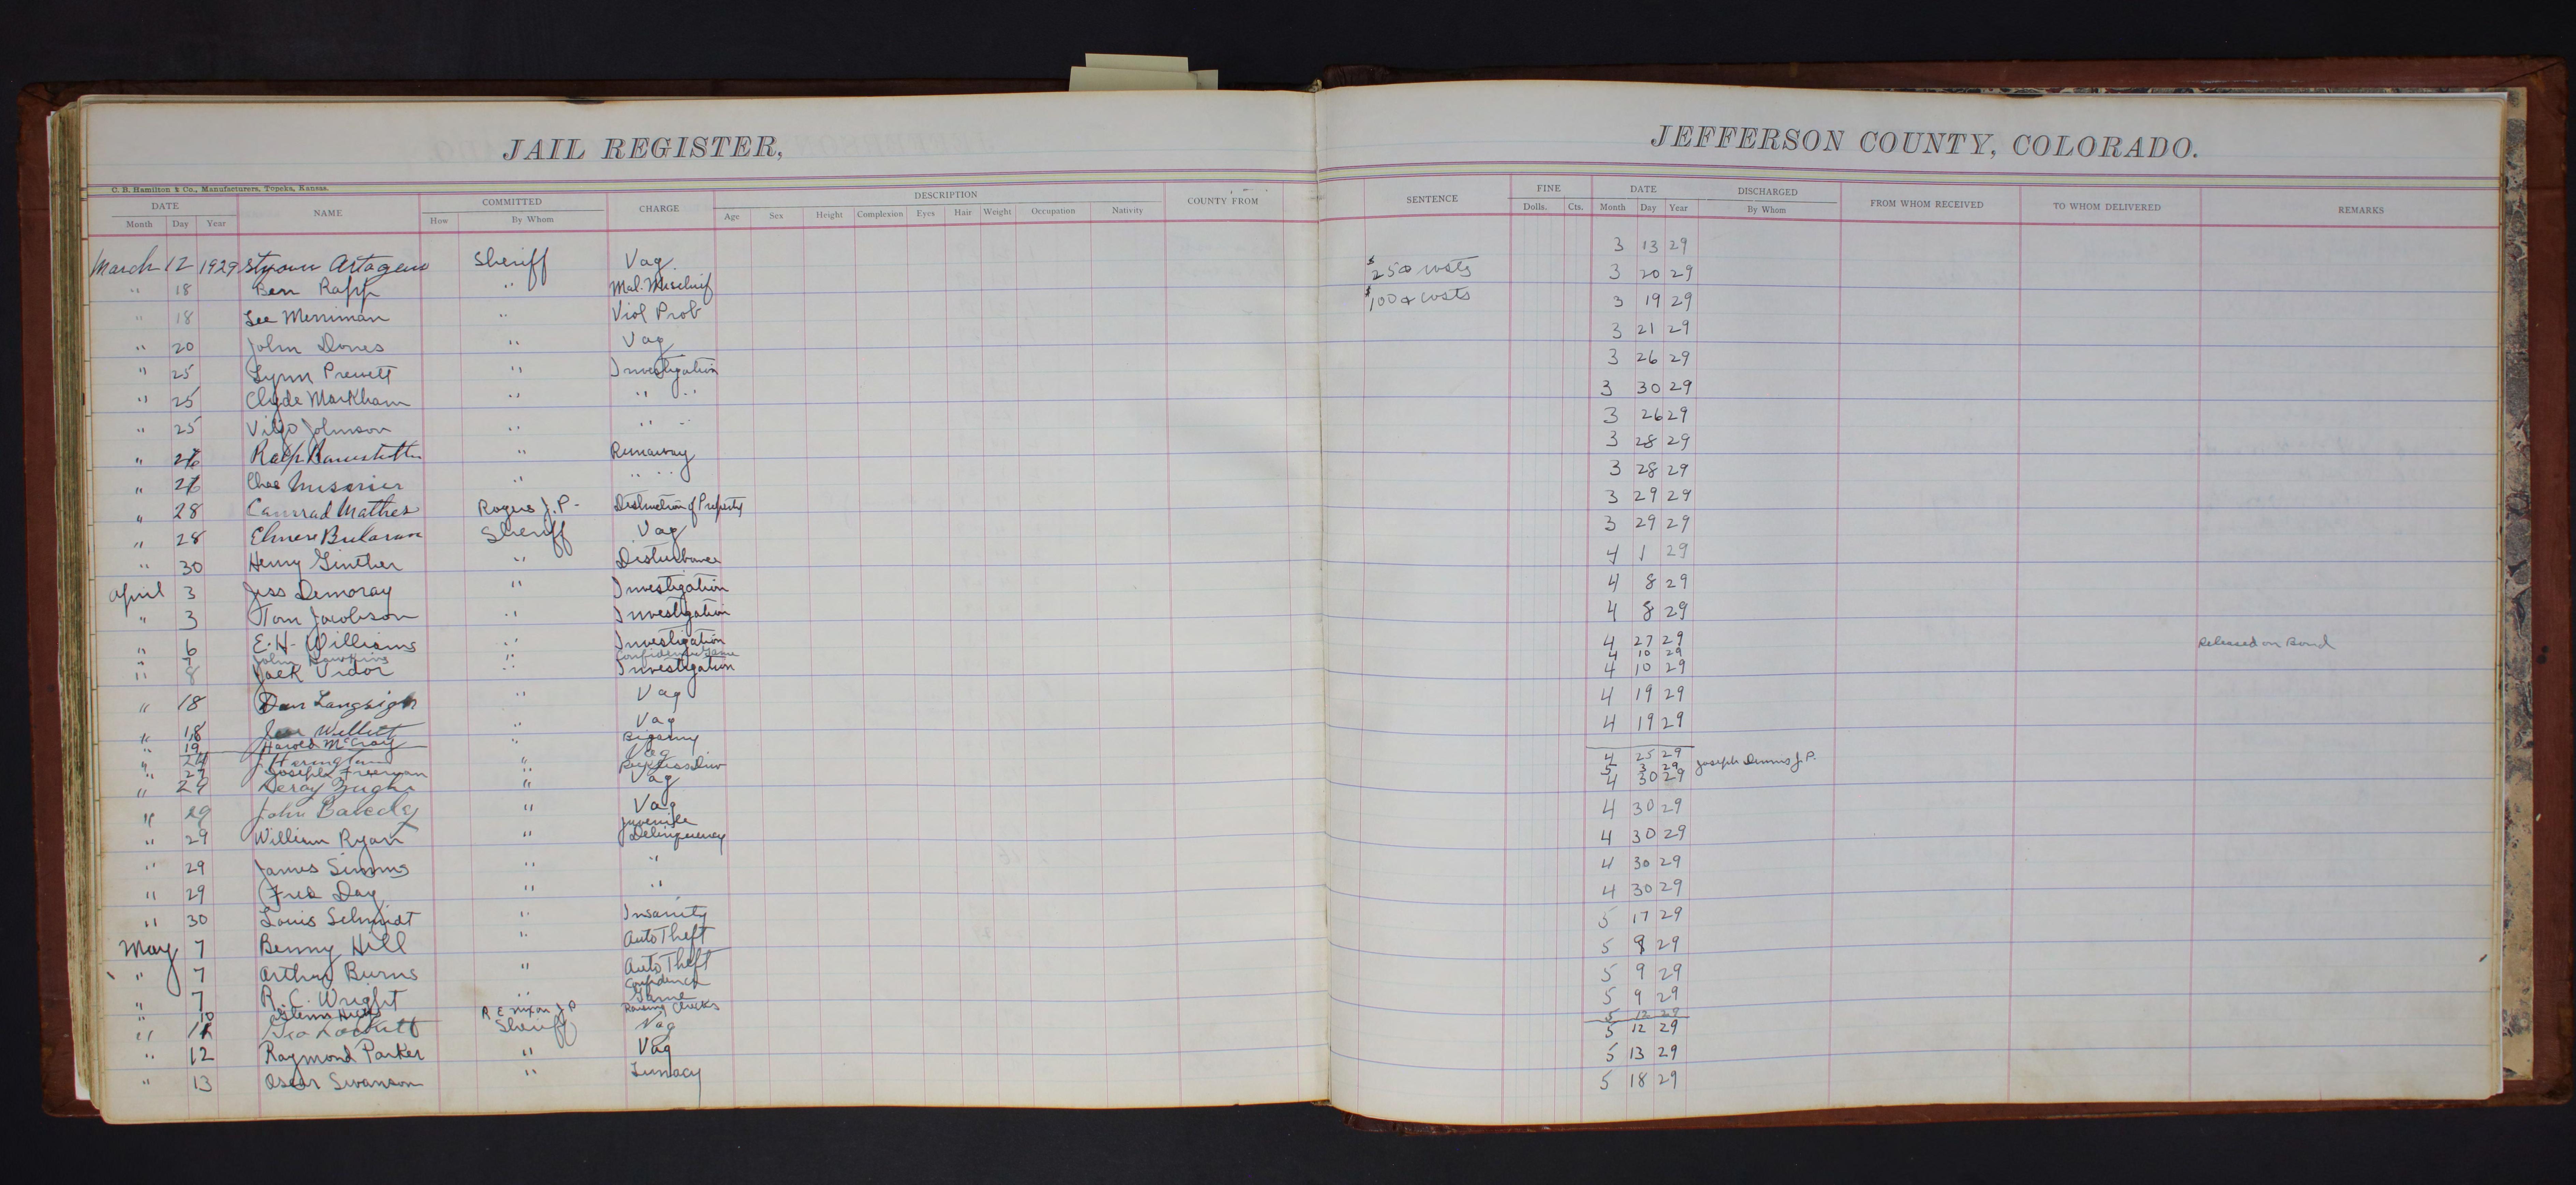 JAIL REGISTER, JEFFERSON COUNTY, COLORADO.
C. B. Hamilton & Co., Manufacturers, Topeka, Kansas.
DATE NAME COMMITTED CHARGE DESCRIPTION COUNTY FROM SENTENCE FINE DATE DISCHARGED FROM WHOM RECEIVED TO WHOM DELIVERED REMARKS
Month Day Year How By Whom Age Sex Height Complexion Eyes Hair Weight Occupation Nativity Dolls. Cts. Month Day Year By Whom
March 12 1929 Sheriff Vag. 3 13 29
" 18 Ben Rapp " Mal. Mischief $25 & costs 3 20 29
" 18 Lee Merriman " Viol Prob $100 & costs 3 19 29
" 20 John Dones " Vag 3 21 29
" 25 Lynn Prewett " Investigation 3 26 29
" 25 Clyde Markham " " " 3 30 29
" 25 Johnson " " " 3 26 29
" 26 Ralph " Runaway 3 28 29
" 26 Chas " " " 3 28 29
" 28 Mathes Rogers J.P. - Distruction of Property 3 29 29
" 28 Sheriff Vag 3 29 29
" 30 Henry Ginther " Disturbance 4 1 29
April 3 Jess Demoray " Investigation 4 8 29
" 3 Tom Jacobson " Investigation 4 8 29
" 6 E. H. Williams " Investigation 4 27 29 Released on Bond
" 7 John Hawkins " Confidence Game 4 10 29
" 8 Jack Vidor " Investigation 4 10 29
" 18 Dan " Vag 4 19 29
" 18 Willett " Vag 4 19 29
" 19 Harold McCraig " Bigamy
" 24 J. Harington " Vag 4 25 29
" 27 Joseph Freeman " 5 3 29 Joseph Dennis J.P.
" 29 Leroy " Vag 4 30 29
" 29 John " Vag 4 30 29
" 29 William Ryan " Juvenile Delinquency 4 30 29
" 29 James Simms " " 4 30 29
" 29 Fred Day " " 4 30 29
" 30 Louis Schmidt " Insanity 5 17 29
May 7 Benny Hill " Auto Theft 5 9 29
" 7 Arthur Burns " Auto Theft 5 9 29
" 7 R. C. Wright " Confidence Game 5 9 29
" 10 Glenn R. E. Nixon J P Raising Checks 5 12 29
" Geo Lockett Sheriff Vag 5 12 29
" 12 Raymond Parker " Vag 5 13 29
" 13 Oscar Swanson " Lunacy 5 18 29